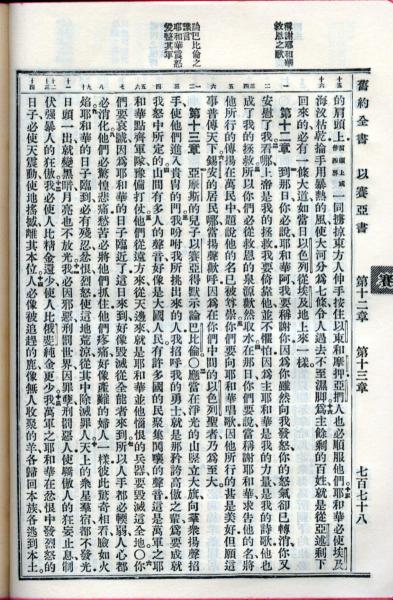 舊約全書 以賽亞書 第十二章 第十三章 七百七十八
賽
稱謝耶和華
救恩之歌
論巴比倫之
默言
耶和華震怒
的肩頭上一同擄掠東方人伸手按住以東和摩押亞捫人也必順服他們耶和華必使埃及
海汊枯乾掄手用暴熱的風使大河分爲七條令人過去不至濕脚爲主餘剩的百姓就是從亞述剩下
回來的必有一條大道如當日以色列從埃及地上來一樣
第十二章 到那日你必說耶和華阿我要稱謝你因爲你雖然向我發怒你的怒氣却已轉消你又
安慰了我看哪上帝是我的拯救我要倚靠他並不懼怕因爲主耶和華是我的力量是我的詩歌他也
成了我的拯救所以你們必從救恩的泉源歡然取水在那日你們要說當稱謝耶和華求告他的名將
他所行的傳揚在萬民中題說他的名已被尊崇你們要向耶和華唱歌因他所行的甚是美好但願這
事普傳天下錫安的居民哪當揚聲歡呼因爲在你們中間的以色列聖者乃爲至大
第十三章 亞摩斯的兒子以賽亞得默示論巴比倫○應當在淨光的山豎立大旗向羣衆揚聲招
手使他們進入貴冑的門我吩咐我所挑出來的人我招呼我的勇士就是那矜誇高傲之輩爲要成就
我怒中所定的山間有多人的聲音好像是大國人民有許多國的民聚集鬨嚷的聲音這是萬軍之耶
和華點齊軍隊豫備打仗他們從遠方來從天邊來就是耶和華並他惱恨的兵器要毀滅這全地○你
們要哀號因爲耶和華的日子臨近了這日來到好像毀滅從全能者來到所以人手都必輭弱人心都
必消化他們必驚惶悲痛愁苦必將他們抓住他們疼痛好像產難的婦人一樣彼此驚奇相看臉如火
焰耶和華的日子臨到必有殘忍忿恨烈怒使這地荒涼從其中除滅罪人天上的衆星羣宿都不發光
日頭一出就變黑暗月亮也不放光我必因邪惡刑罰世界因罪孽刑罰惡人使驕傲人的狂妄止息制
伏強暴人的狂傲我必使人比精金還少使人比俄斐純金更少我萬軍之耶和華在忿恨中發烈怒的
日子必使天震動使地搖撼離其本位人必像被追趕的鹿像無人收聚的羊各歸回本族各逃到本土